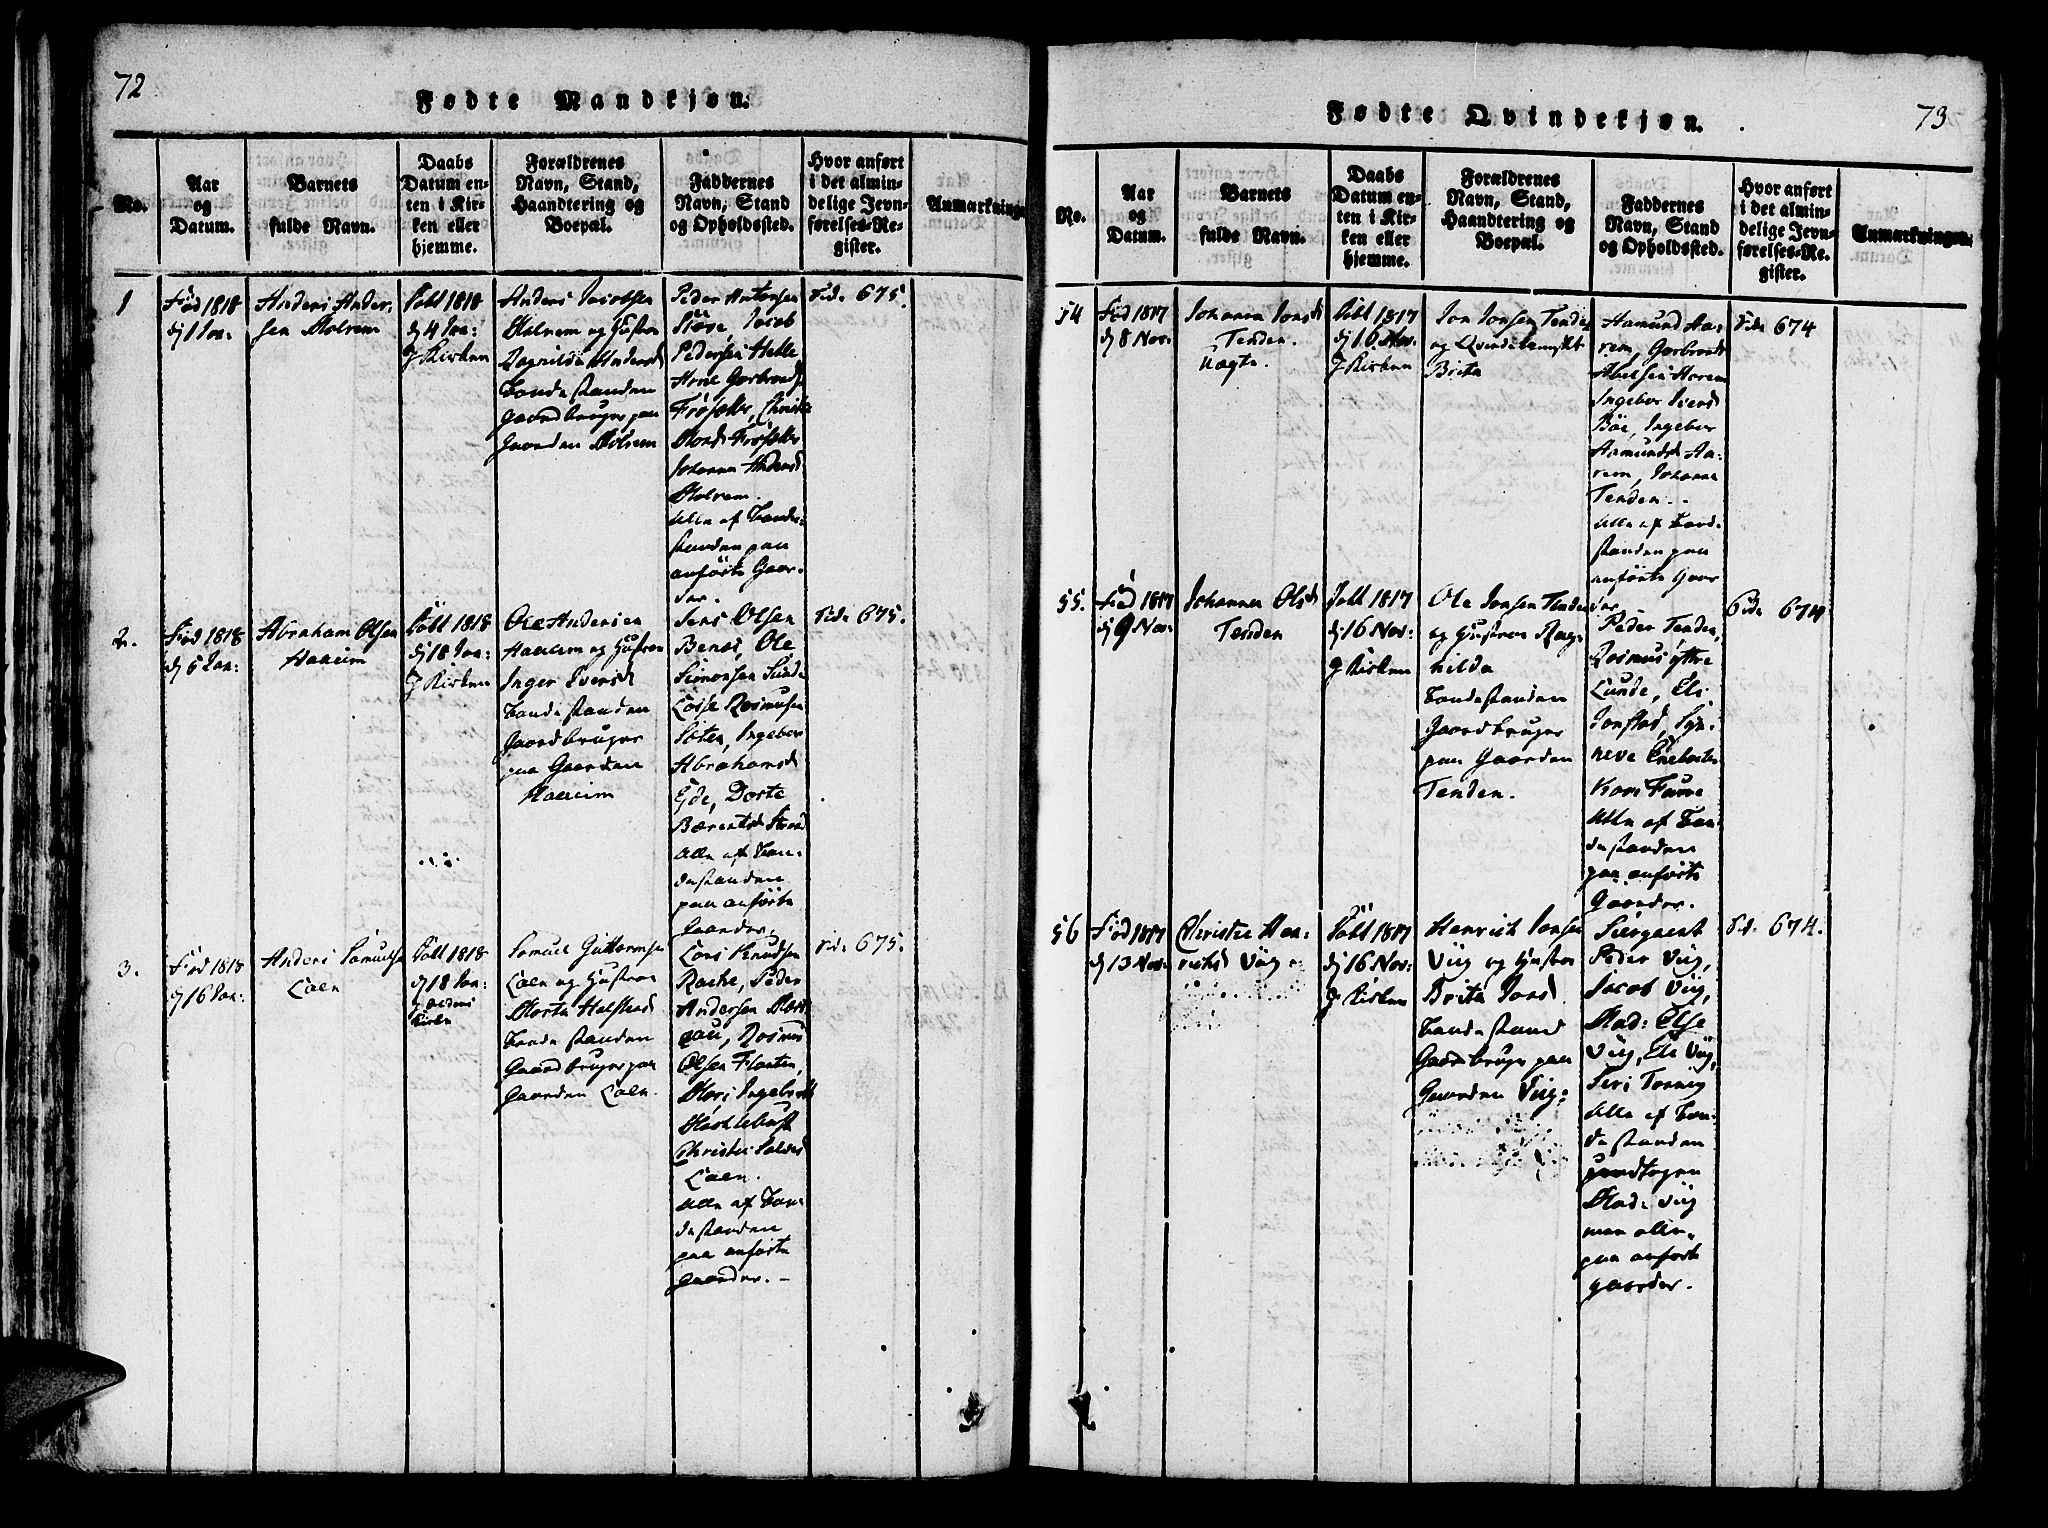 72
Fødte Mandkjøn.
No.
Aar
og
Datum.
Barnets
fulde Navn.
Daabs
Datum en-
ten i Kir-
ken eller
hjemme.
Forældrenes
Navn, Stand,
Haandtering og
Boepæl.
Faddernes
Navn, Stand
og Opholdssted.
Hvor anført
i det almin-
delige Jevn-
førelses-Re-
gister.
Anmærkninge
1
Fød 1818
dj 1 Jan:
Anders Ander-
sen Molrem
Døbt 1818
dj 4 Jan:
J Kirken
Anders Jacobsen
Molrem og Hustroe
Ragnilde Andersd
Bondestanden
Gaardbruger paa
Gaarden Molrem
Peder Antonsen
Støve, Jacob
Pedersen Helle
Arne Gorbrands
Frøsætter, Christi
Mons Frøsætter
Johanna Andersd
Molrem.
Alle af Bonde-
standen paa
anførte Gaar-
der.
Side 675.
2.
Fød 1818
dj 5 Jan:
Abraham Olsen
Haaeim
Døbt 1818
dj 18 Jan:
J Kirken
Ole Andersen
Haaeim og Hustroe
Inger Iversd
Bondestanden
Gaardbruger
paa Gaarden
Haaeim
Jens Olsen
Ole
Simonsen Sunde
Lasse Rasmusen
Sæten, Ingebor
Abrahamsd
Eide, Dorte
Bærentsd
Alle af Bon-
destanden
paa anførte
Gaarder.
Side 675.
3.
Fød 1818
dj 16 Jan:
Anders Samuelsen
Loen
Døbt 1818
dj 18 Jan:
J
Kirke
Samuel Guttormsen
Loen og Hustroe
Marta
Bondestanden
Gaardbruger paa
Gaarden Loen.
Lars Knudsen
Rache, Peder
Andersen
Rasmus
Olsen Floeten,
Mari Ingebrets
Christie
Loen.
Alle af Bon-
destanden
paa anførte
gaarder. –
Side 675.
Fødte Qvindekjøn.
73
No.
Aar
og
Datum.
Barnets
fulde Navn.
Daabs
Datum en-
ten i Kir-
ken eller
hjemme.
Forældrenes
Navn, Stand,
Haandtering og
Boepæl.
Faddernes
Navn, Stand
og Opholdssted.
Hvor anført
i det almin-
delige Jevn-
førelses-Re-
gister.
Anmærkninger.
54
Fød 1817
dj 8 Nov:
Johanna Jonsd
Tenden.
Uægte.
Døbt 1817
dj 16 Nov:
J Kirken
Jon Jonsen Tenden
og Qvindemennisket
Brita
Aamund Aa-
rem, Gorbrand
Abelsen Aarem
Ingebor Iversd
Bøe, Ingebor
Aamundsd Aa-
rem, Johanna
Tenden. -
Alle af Bonde-
standen paa
anførte Gaar
der.
Side 674
55.
Fød 1817
dj 9 Nov:
Johanna Olsd
Tenden
Døbt 1817
dj 16 Nov:
J Kirken
Ole Jonsen Tenden
og Hustroe Rag-
nilda
Bondestanden
Gaardbruger
paa Gaarden
Tenden.
Peder Tenden,
Rasmus Yttre
Lunde, Eli
Jonstad, Syn-
neve
Kari Faure
Alle af Bon-
destanden
paa anførte
Gaarder.
Side 674
56
Fød 1817
dj 13 Nov:
Christie Hen-
richsd Viig
Døbt 1817
dj 16 Nov:
J Kirken
Henrich Jonsen
Viig og Hustroe
Brita Jonsd
Bondestand
Gaardbruger paa
Gaarden Viig.
Sergeant
Peder Viig,
Jacob Viig,
Mad: Else
Viig, Eli Viig,
Siri Tonning
Alle af Bon-
destanden
undtagen
Mad: Viig
men alle
paa anførte
gaarder.
Side 674.